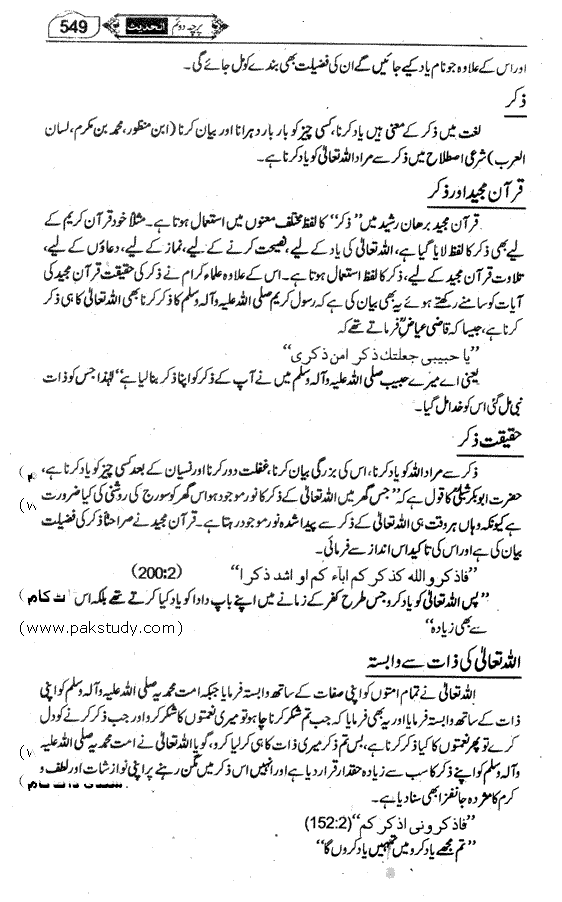 549 پرچہ دوئم الحدیث
اور اس کے علاوہ جو نام یاد کیے جائیں گے ان کی فضیلت بھی بندے کو مل جائے گی۔
ذکر
لغت میں ذکر کے معنی ہیں یاد کرنا، کسی چیز کو بار بار دہرانا اور بیان کرنا (ابن منظور، محمد بن مکرم، لسان
العرب) شرعی اصطلاح میں ذکر سے مراد اللہ تعالیٰ کو یاد کرنا ہے۔
قرآن مجید اور ذکر
قرآن مجید برھان رشید میں ”ذکر“ کا لفظ مختلف معنوں میں استعمال ہوتا ہے۔ مثلاً خود قرآن کریم کے
لیے بھی ذکر کا لفظ لایا گیا ہے، اللہ تعالیٰ کی یاد کے لیے، نصیحت کرنے کے لیے، نماز کے لیے، دعاؤں کے لیے،
تلاوت قرآن مجید کے لیے، ذکر کا لفظ استعمال ہوتا ہے۔ اس کے علاوہ علماء کرام نے ذکر کی حقیقت قرآن مجید کی
آیات کو سامنے رکھتے ہوئے یہ بھی بیان کی ہے کہ رسول کریم صلی اللہ علیہ وآلہ وسلم کا ذکر کرنا بھی اللہ تعالیٰ کا ہی ذکر
کرنا ہے، جیسا کہ قاضی عیاضؒ فرماتے تھے کہ
”یا حبیبی جعلتك ذکر امن ذکری“
یعنی اے میرے حبیب صلی اللہ علیہ وآلہ وسلم میں نے آپ کے ذکر کو اپنا ذکر بنا لیا ہے“ لہٰذا جس کو ذات
نبی مل گئی اس کو خدا مل گیا۔
حقیقت ذکر
ذکر سے مراد اللہ کو یاد کرنا، اس کی بزرگی بیان کرنا، غفلت دور کرنا اور نسیان کے بعد کسی چیز کو یاد کرنا ہے،
حضرت ابو بکر شبلیؒ کا قول ہے کہ ”جس گھر میں اللہ تعالیٰ کے ذکر کا نور موجود ہو اس گھر کو سورج کی روشنی کی کیا ضرورت
ہے کیونکہ وہاں ہر وقت ہی اللہ تعالیٰ کے ذکر سے پیدا شدہ نور موجود رہتا ہے۔ قرآن مجید نے صراحتاً ذکر کی فضیلت
بیان کی ہے اور اس کی تاکید اس انداز سے فرمائی۔
”فاذکر واللہ کذکر کم اباء کم او اشد ذکرا“ (200:2)
”پس اللہ تعالیٰ کو یاد کرو جس طرح کفر کے زمانے میں اپنے باپ دادا کو یاد کیا کرتے تھے بلکہ اس
سے بھی زیادہ“ (www.pakstudy.com)
اللہ تعالیٰ کی ذات سے وابستہ
اللہ تعالیٰ نے تمام امتوں کو اپنی صفات کے ساتھ وابستہ فرمایا جبکہ امت محمدیہ صلی اللہ علیہ وآلہ وسلم کو اپنی
ذات کے ساتھ وابستہ فرمایا اور یہ بھی فرمایا کہ جب تم شکر کرنا چاہو تو میری نعمتوں کا شکر کرو اور جب ذکر کرنے کو دل
کرے تو پھر نعمتوں کا کیا ذکر کرنا ہے، بس تم ذکر میری ذات کا ہی کر لیا کرو، گویا اللہ تعالیٰ نے امت محمدیہ صلی اللہ علیہ
وآلہ وسلم کو اپنے ذکر کا سب سے زیادہ حقدار قرار دیا ہے اور انہیں اس ذکر میں مگن رہنے پر اپنی نوازشات اور لطف و
کرم کا مژدہ جانفزا بھی سنا دیا ہے۔
”فاذکرونی اذکر کم“ (152:2)
”تم مجھے یاد کرو میں تمہیں یاد کروں گا“